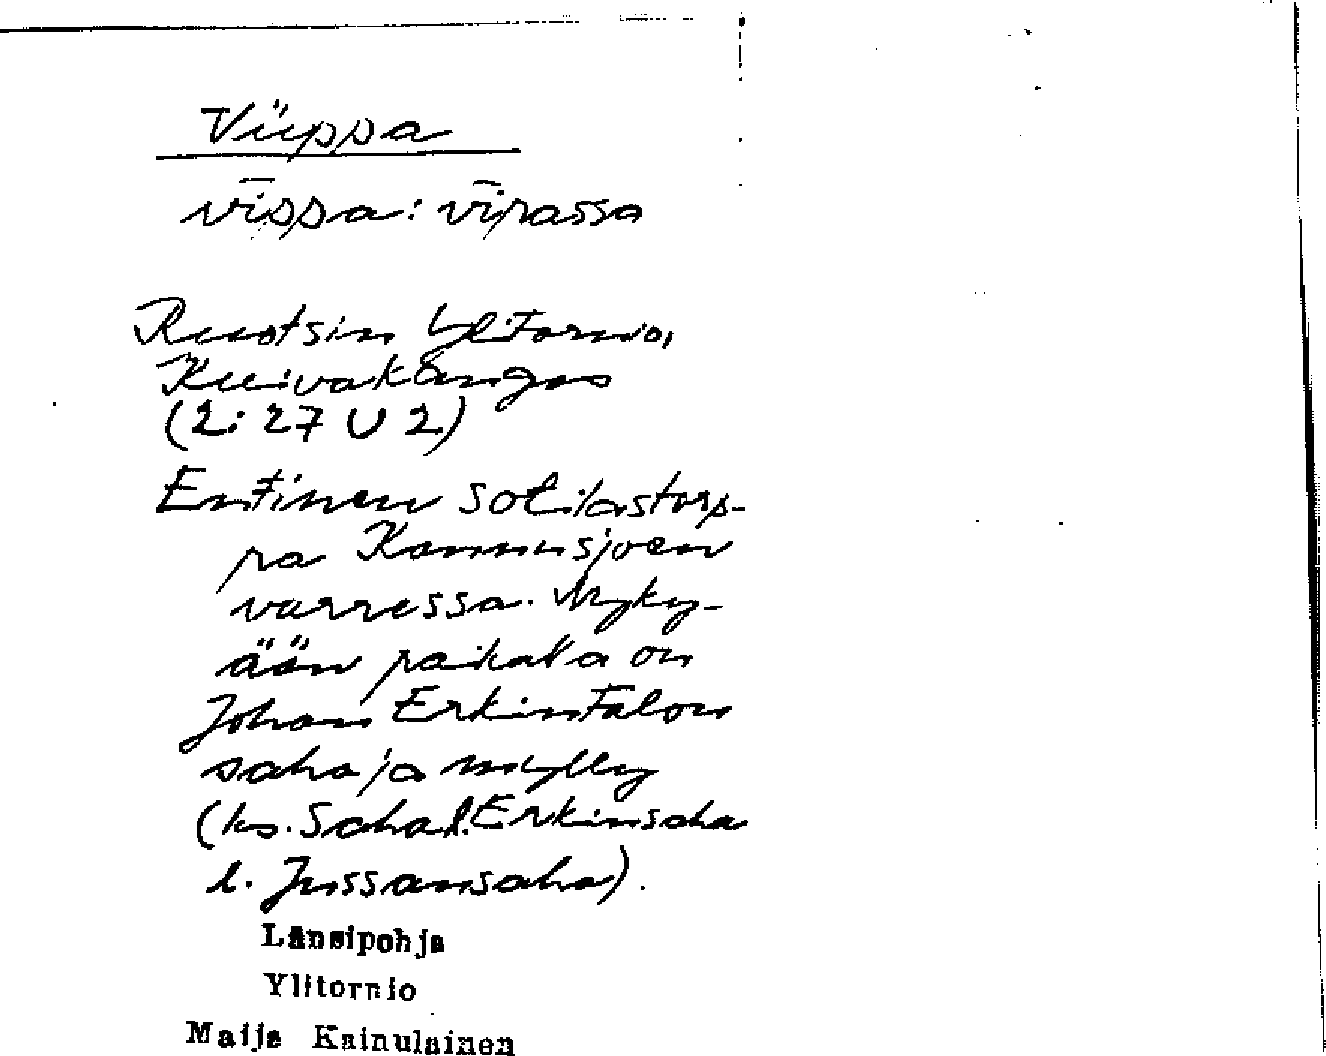 Viippa
vīppa: vīpassa
Ruotsin Ylitornio,
Kuivakangas
(2: 27 U 2)
Entinen sotilastorp-
pa Kannusjoen
varressa. Nyky-
ään paikalla on
Johan Erkintalon
saha ja mylly
(ks. Saha l. Erkinsaha
l. Jussansaha).
Länsipohja
Ylitornio
Maija Kainulainen